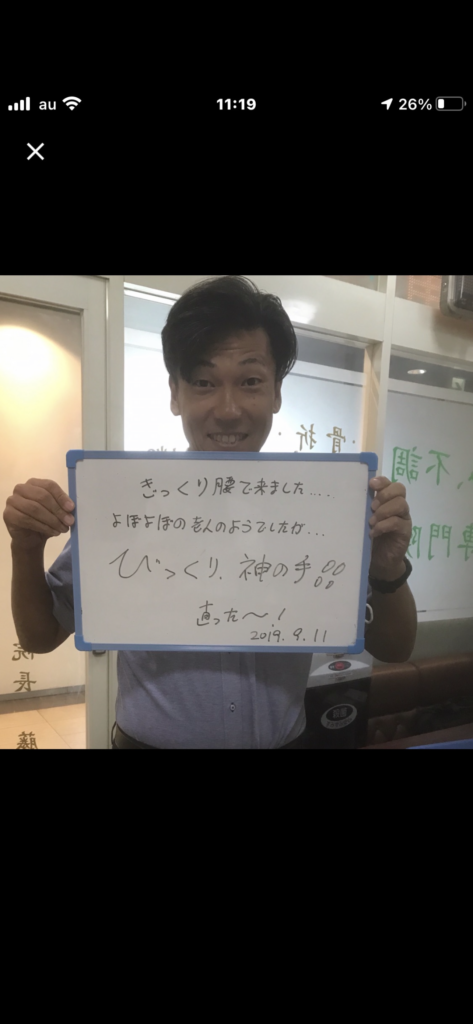 au
11:19
26%
ぎっくり腰で来ました....
よぼよぼの老人のようでしたが...
びっくり、神の手!!
直った〜!
2019.9.11
・骨折・
不調
専門院
院長 藤